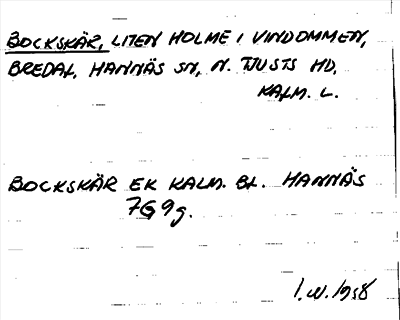 BOCKSKÄR, LITEN HOLME I VINDOMMEN,
BREDAL, HANNÄS SN, N. TJUSTS HD,
KALM. L.
BOCKSKÄR EK KALM. BL. HANNÄS
7G9g.